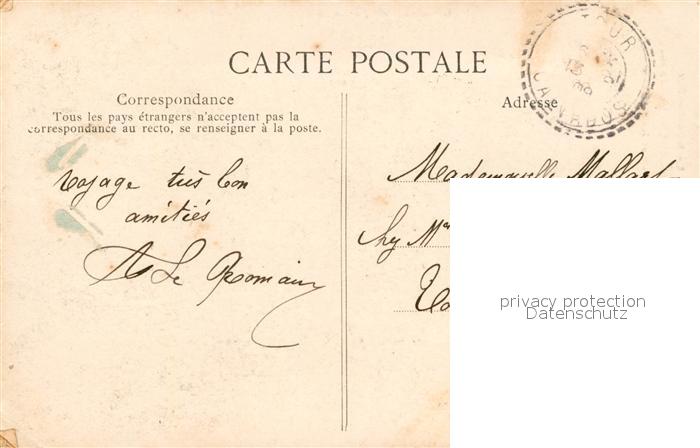 CARTE POSTALE
TOUR
CALVADOS
Correspondance
Tous les pays étrangers n'acceptent pas la
correspondance au recto, se renseigner à la poste.
Adresse
Voyage très bon
amitiés
A Le Romain
Mademoiselle Mallard
chez Mme
privacy protection
Datenschutz